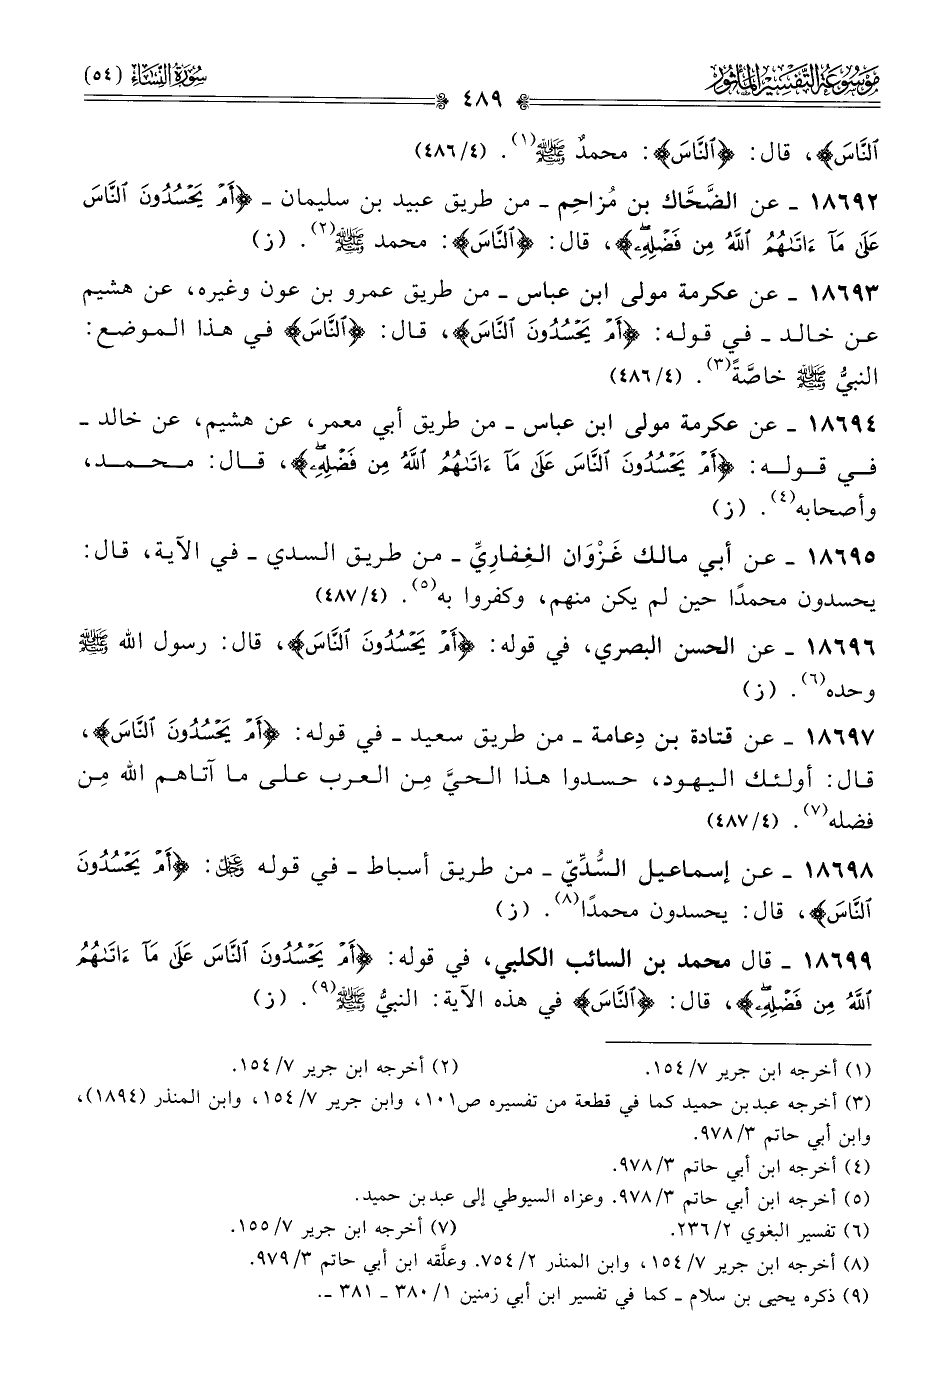 موسوعة التفسير المأثور
سورة النساء (٥٤)
٤٨٩
ٱلنَّاسَ﴾، قال: ﴿ٱلنَّاسَ﴾: محمدٌ ﷺ(١). (٤٨٦/٤)
١٨٦٩٢ ـ عن الضَّحَّاك بن مُزاحِم ـ من طريق عبيد بن سليمان ـ ﴿أَمۡ يَحۡسُدُونَ ٱلنَّاسَ
عَلَىٰ مَآ ءَاتَىٰهُمُ ٱللَّهُ مِن فَضۡلِهِۦۖ﴾، قال: ﴿ٱلنَّاسَ﴾: محمد ﷺ(٢). (ز)
١٨٦٩٣ ـ عن عكرمة مولى ابن عباس ـ من طريق عمرو بن عون وغيره، عن هشيم
عن خالد ـ في قوله: ﴿أَمۡ يَحۡسُدُونَ ٱلنَّاسَ﴾، قال: ﴿ٱلنَّاسَ﴾ في هذا الموضع:
النبيُّ ﷺ خاصَّةً(٣). (٤٨٦/٤)
١٨٦٩٤ ـ عن عكرمة مولى ابن عباس ـ من طريق أبي معمر، عن هشيم، عن خالد ـ
في قوله: ﴿أَمۡ يَحۡسُدُونَ ٱلنَّاسَ عَلَىٰ مَآ ءَاتَىٰهُمُ ٱللَّهُ مِن فَضۡلِهِۦۖ﴾، قال: محمد،
وأصحابه(٤). (ز)
١٨٦٩٥ ـ عن أبي مالك غَزْوَان الغِفاريِّ ـ من طريق السدي ـ في الآية، قال:
يحسدون محمدًا حين لم يكن منهم، وكفروا به(٥). (٤٨٧/٤)
١٨٦٩٦ ـ عن الحسن البصري، في قوله: ﴿أَمۡ يَحۡسُدُونَ ٱلنَّاسَ﴾، قال: رسول الله ﷺ
وحده(٦). (ز)
١٨٦٩٧ ـ عن قتادة بن دِعامة ـ من طريق سعيد ـ في قوله: ﴿أَمۡ يَحۡسُدُونَ ٱلنَّاسَ﴾،
قال: أولئك اليهود، حسدوا هذا الحيَّ مِن العرب على ما آتاهم الله مِن
فضله(٧). (٤٨٧/٤)
١٨٦٩٨ ـ عن إسماعيل السُّدِّيّ ـ من طريق أسباط ـ في قوله عز وجل: ﴿أَمۡ يَحۡسُدُونَ
ٱلنَّاسَ﴾، قال: يحسدون محمدًا(٨). (ز)
١٨٦٩٩ ـ قال محمد بن السائب الكلبي، في قوله: ﴿أَمۡ يَحۡسُدُونَ ٱلنَّاسَ عَلَىٰ مَآ ءَاتَىٰهُمُ
ٱللَّهُ مِن فَضۡلِهِۦۖ﴾، قال: ﴿ٱلنَّاسَ﴾ في هذه الآية: النبيُّ ﷺ(٩). (ز)
(١) أخرجه ابن جرير ٧/ ١٥٤. (٢) أخرجه ابن جرير ٧/ ١٥٤.
(٣) أخرجه عبد بن حميد كما في قطعة من تفسيره ص١٠١، وابن جرير ٧/ ١٥٤، وابن المنذر (١٨٩٤)،
وابن أبي حاتم ٣/ ٩٧٨.
(٤) أخرجه ابن أبي حاتم ٣/ ٩٧٨.
(٥) أخرجه ابن أبي حاتم ٣/ ٩٧٨. وعزاه السيوطي إلى عبد بن حميد.
(٦) تفسير البغوي ٢/ ٢٣٦. (٧) أخرجه ابن جرير ٧/ ١٥٥.
(٨) أخرجه ابن جرير ٧/ ١٥٤، وابن المنذر ٢/ ٧٥٤. وعلَّقه ابن أبي حاتم ٣/ ٩٧٩.
(٩) ذكره يحيى بن سلام ـ كما في تفسير ابن أبي زمنين ١/ ٣٨٠ ـ ٣٨١ ـ.